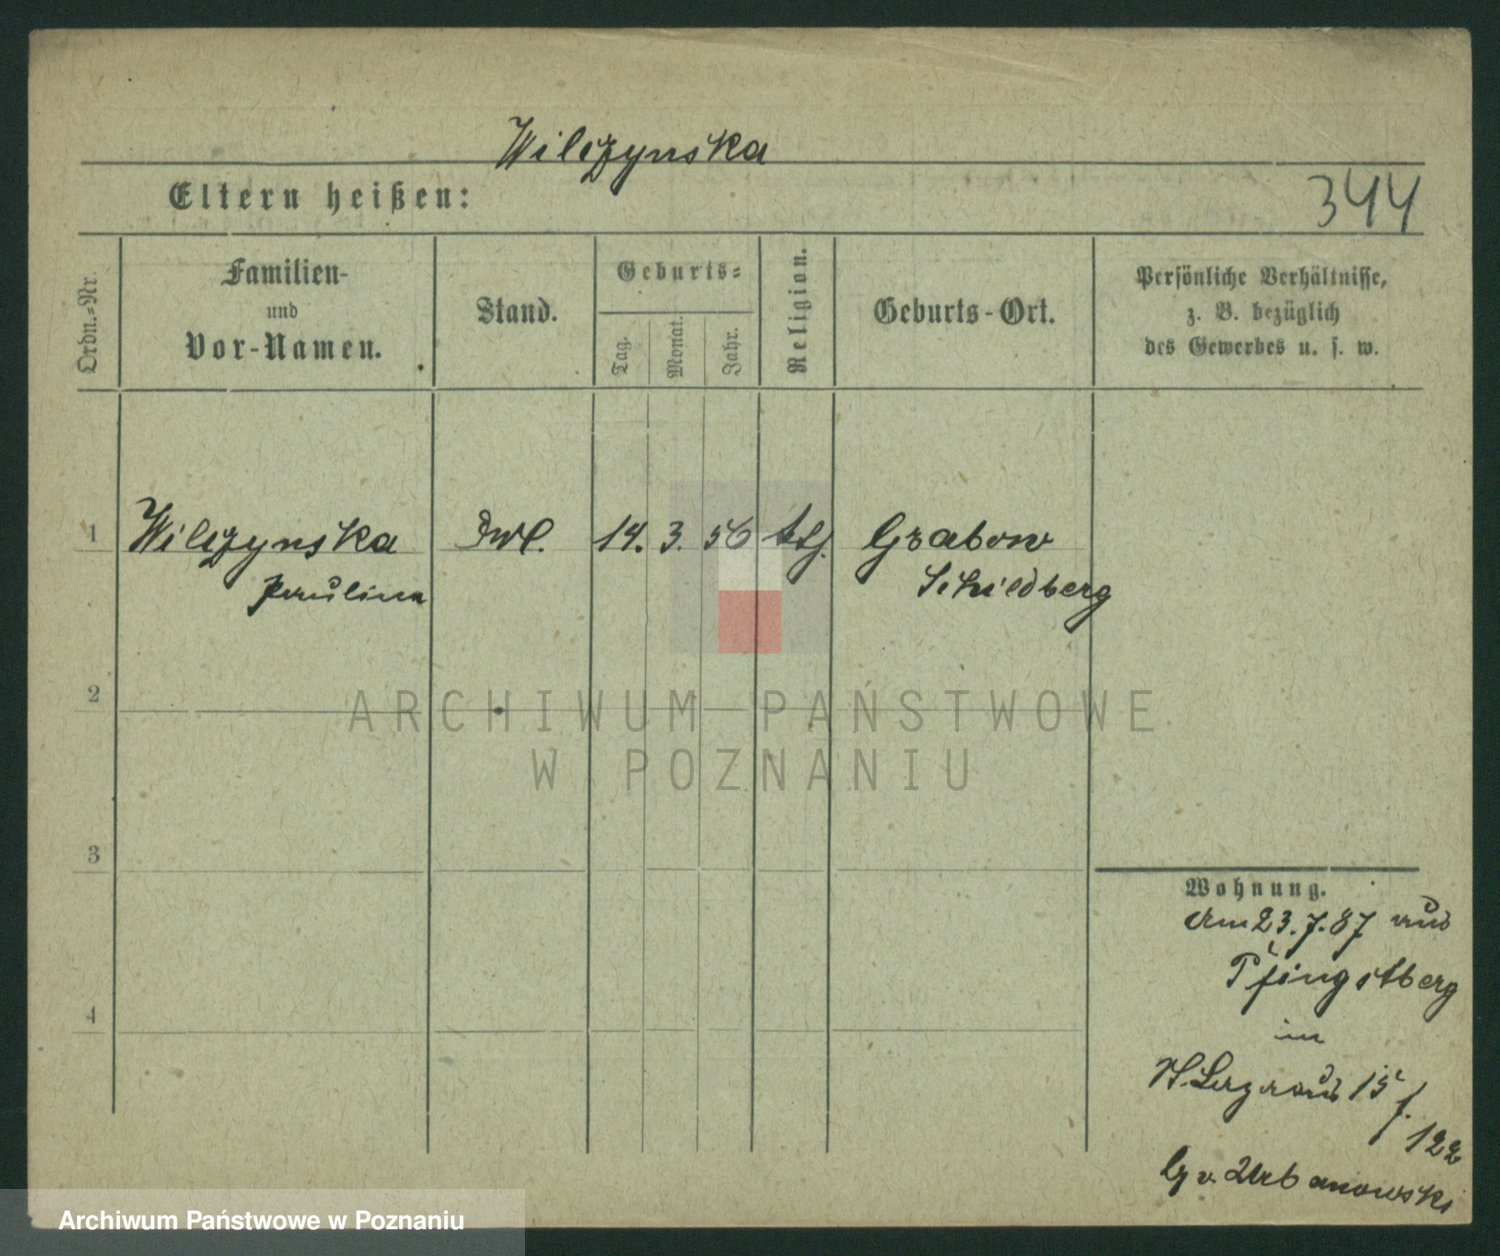 Wilczynska
Eltern heißen:
344
Ordn.-Nr.
Familien-
und
Vor-Namen.
Stand.
Geburts-
Tag.
Monat.
Jahr.
Religion.
Geburts-Ort.
Persönliche Verhältnisse,
z. B. bezüglich
des Gewerbes u. s. w.
1 Wilczynska 14. 3. 56 Grabow
Paulina Schildberg
2
3
4
Wohnung.
Am 23.7.87 aus
Pfingstberg
in
15 f.
122
v. Urbanowski
ARCHIWUM PAŃSTWOWE
W POZNANIU
Archiwum Państwowe w Poznaniu